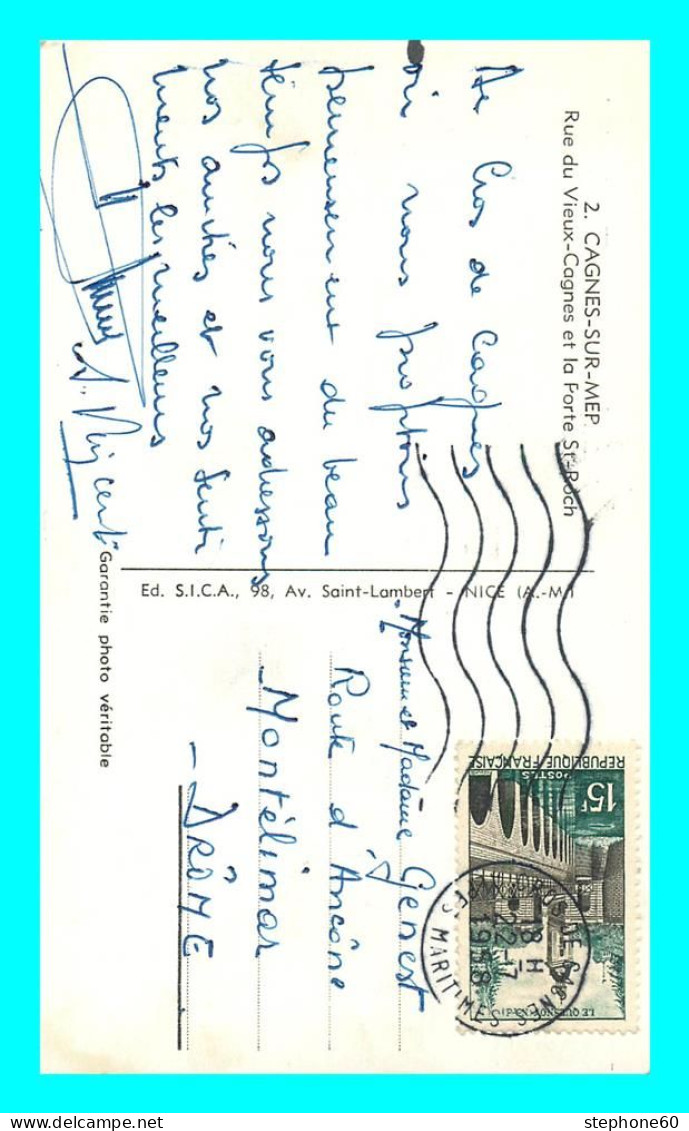 2. CAGNES-SUR-MER
Rue du Vieux-Cagnes et la Porte St-Roch
De Cros de Cagnes
où nous profitons
pleinement du beau
temps nous vous adressons
nos amitiés et nos senti
ments les meilleurs
Vincent
Garantie photo véritable
Ed. S.I.C.A., 98, Av. Saint-Lambert - NICE (A.-M.)
Monsieur et Madame Genest
Route d'Ancône
Montélimar
- DRÔME
15F
POSTES
REPUBLIQUE FRANÇAISE
LE QUESNOY-NORD
CROS-DE-CAGNES
18 H
22-17
1958
MARITIMES
stephone60